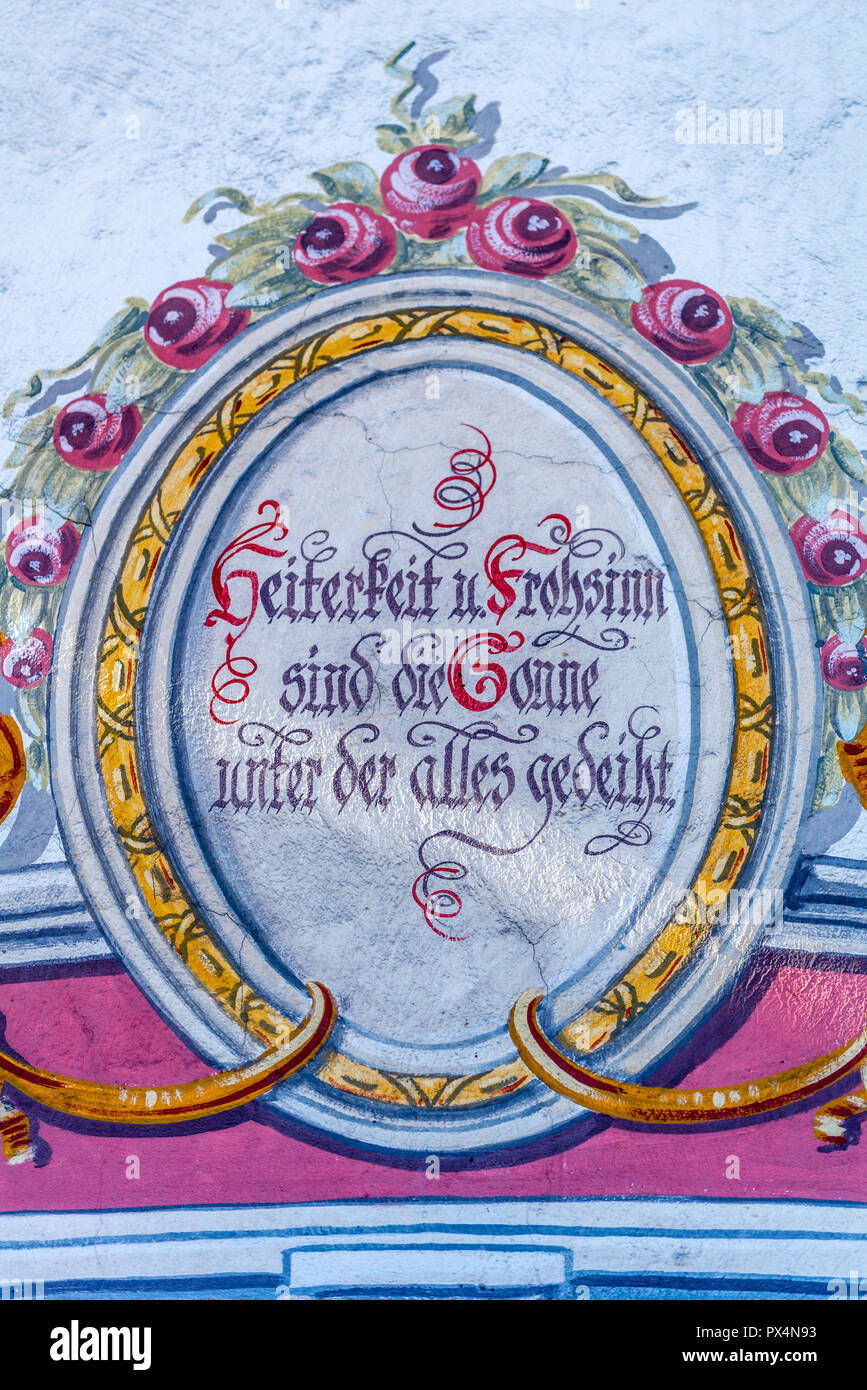 Heiterkeit u. Frohsinn
sind die Sonne
unter der alles gedeiht.
alamy
Image ID: PX4N93
www.alamy.com